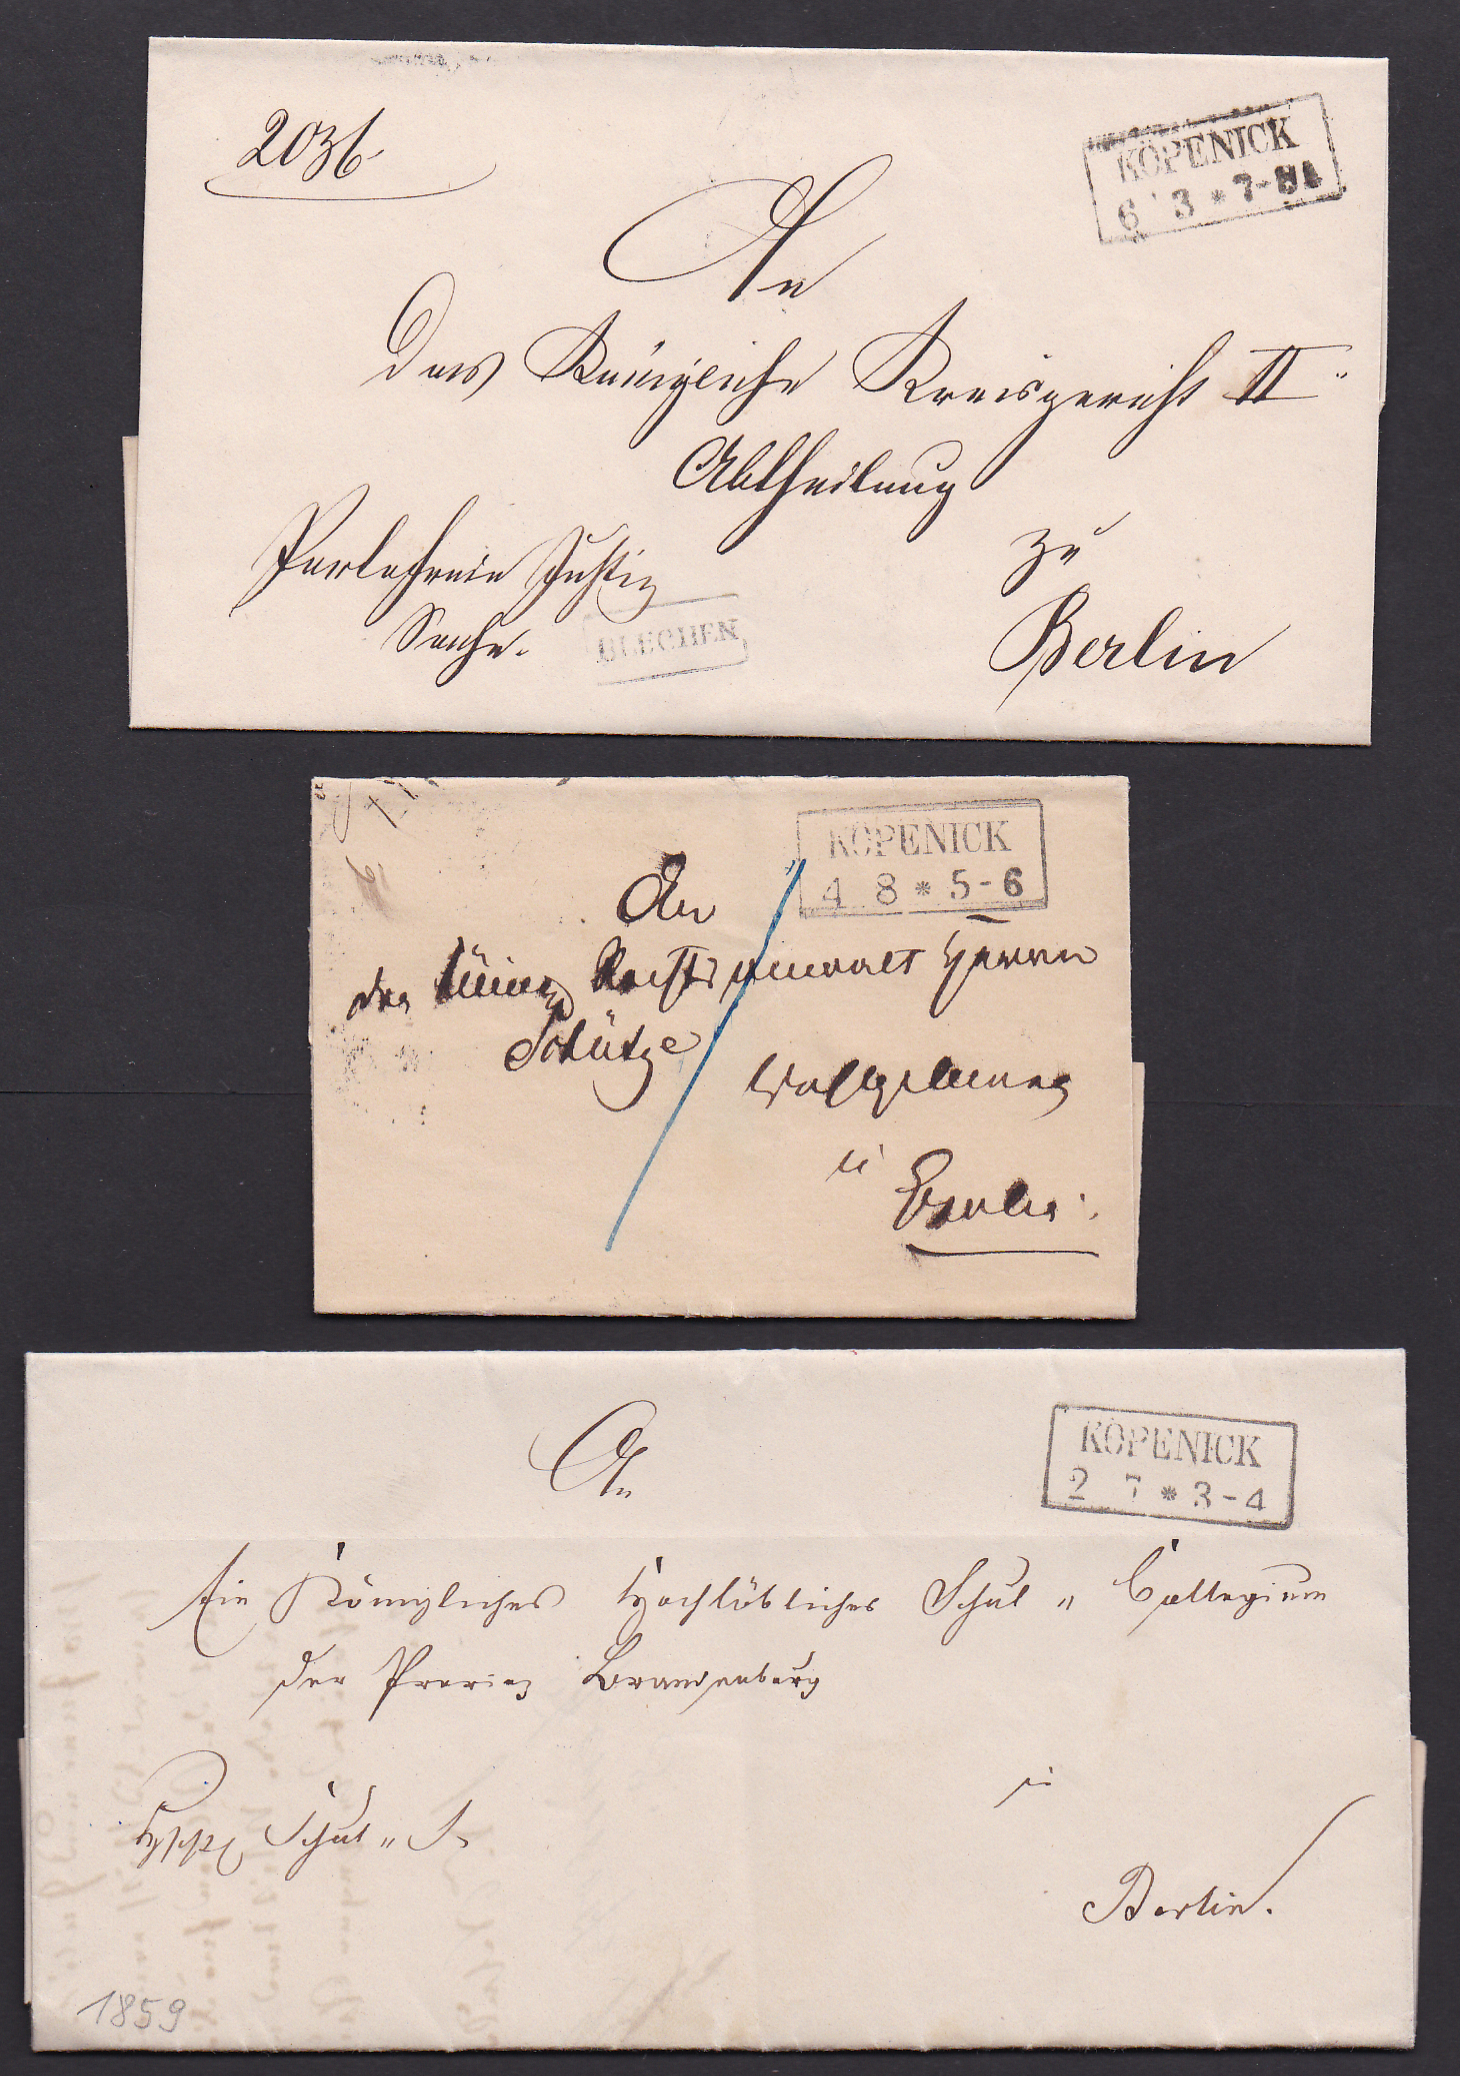 2036
KÖPENICK
6 3 * 7-8
An
Das Königliche Kreisgericht II
Abtheilung
zu
Portofreie Justiz
Sache.
Berlin
KÖPENICK
4 8 * 5-6
An
den Rechtsanwalt Herrn
Schütze
Wohlgeboren
in
Berlin.
KÖPENICK
2 7 * 3-4
An
Ein Königliches Hochlöbliches Schul " Collegium
der Provinz Brandenburg
in
Schul " S.
Berlin.
1859